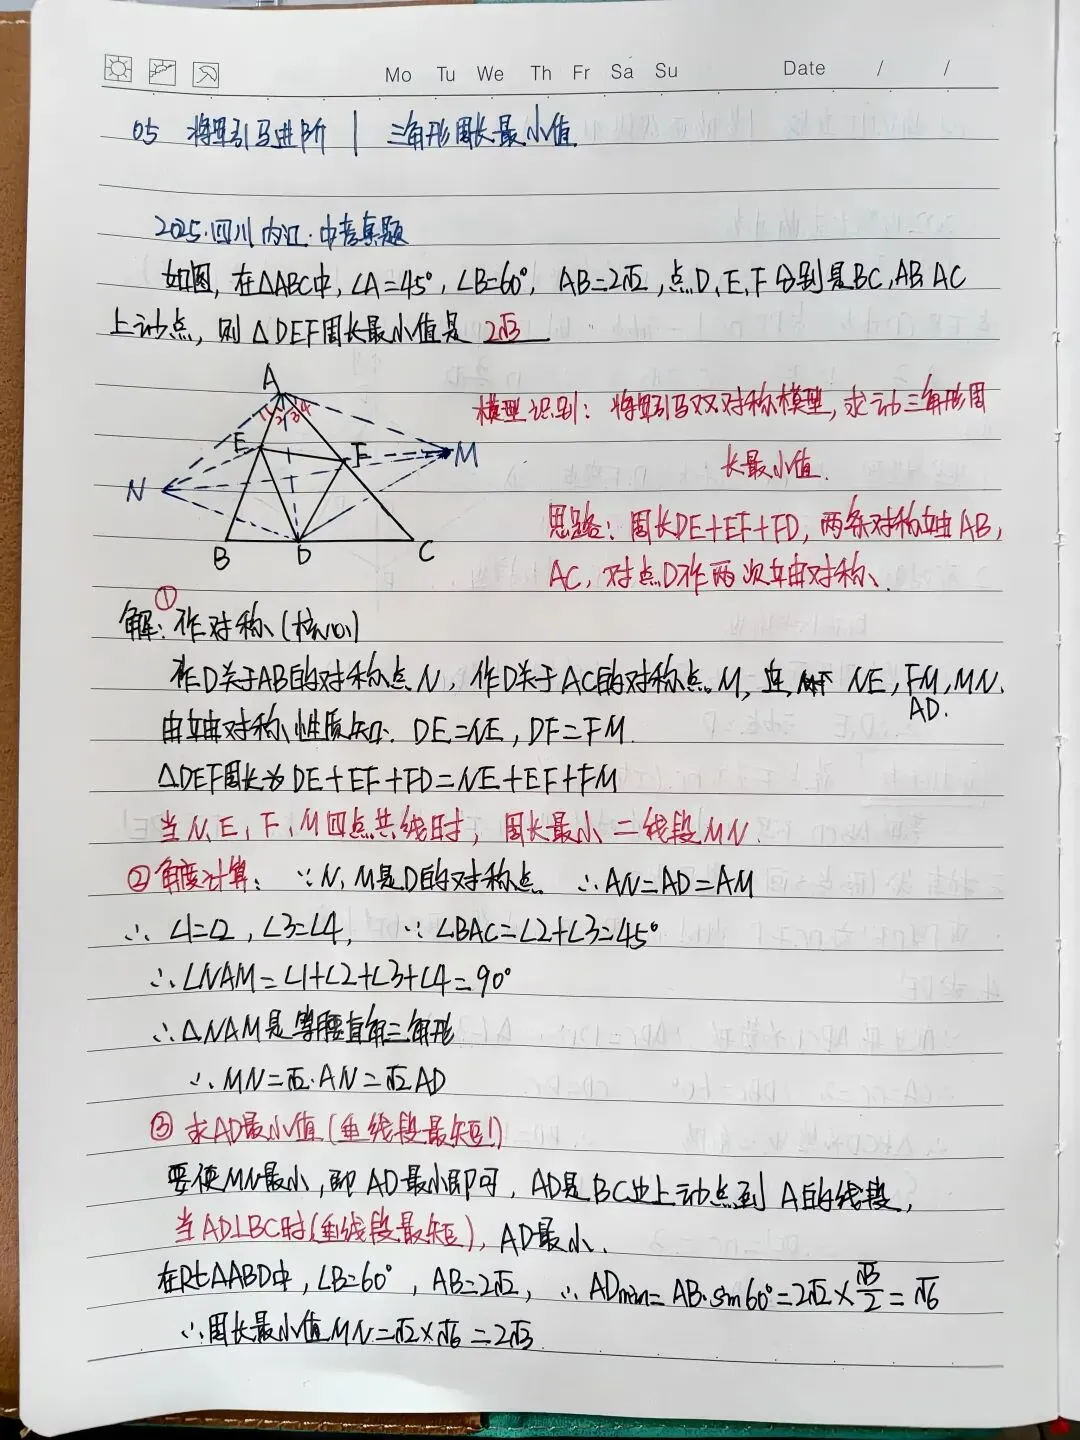 Mo Tu We Th Fr Sa Su Date / /
05 将军引马进阶 | 三角形周长最小值
2025·四川内江·中考真题
如图,在△ABC中,∠A=45°,∠B=60°,AB=2√2,点D、E、F分别是BC,AB AC
上动点,则△DEF周长最小值是 2√3
A
1 2 3 4
E F M
N
B D C
模型识别:将军引马双对称模型,求动三角形周
长最小值.
思路:周长DE+EF+FD,两条对称轴AB,
AC,对点D作两次轴对称、
解:①作对称(核心)
作D关于AB的对称点N,作D关于AC的对称点M,连 NE,FM,MN.
AD.
由轴对称性质知:DE=NE,DF=FM.
△DEF周长为DE+EF+FD=NE+EF+FM
当N、E、F、M四点共线时,周长最小=线段MN.
②角度计算:∵N、M是D的对称点 ∴AN=AD=AM
∴∠1=∠2,∠3=∠4, ∵∠BAC=∠2+∠3=45°
∴∠NAM=∠1+∠2+∠3+∠4=90°
∴△NAM是等腰直角三角形
∴MN=√2·AN=√2AD
③求AD最小值(垂线段最短!)
要使MN最小,即AD最小即可,AD是BC边上动点到A的线段,
当AD⊥BC时(垂线段最短),AD最小.
在Rt△ABD中,∠B=60°,AB=2√2,∴ADmin=AB·sin60°=2√2×√3/2=√6
∴周长最小值MN=√2×√6=2√3